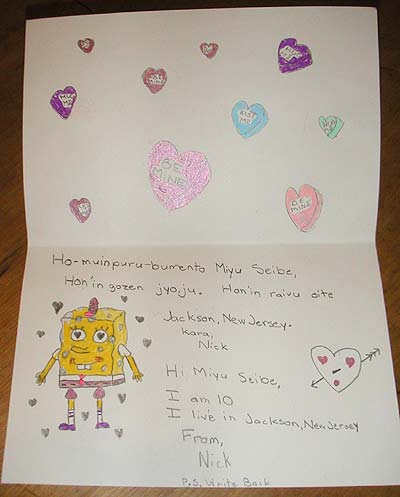 HUG ME
KISS ME
BE MINE
BE MINE
Ho-muinpuru-bumento Miyu Seibe,
Hon'in gozen jyoju. Hon'in raivu oite
Jackson, New Jersey.
Kara,
Nick
Hi Miyu Seibe,
I am 10
I live in Jackson, New Jersey
From,
Nick
P.S. Write Back